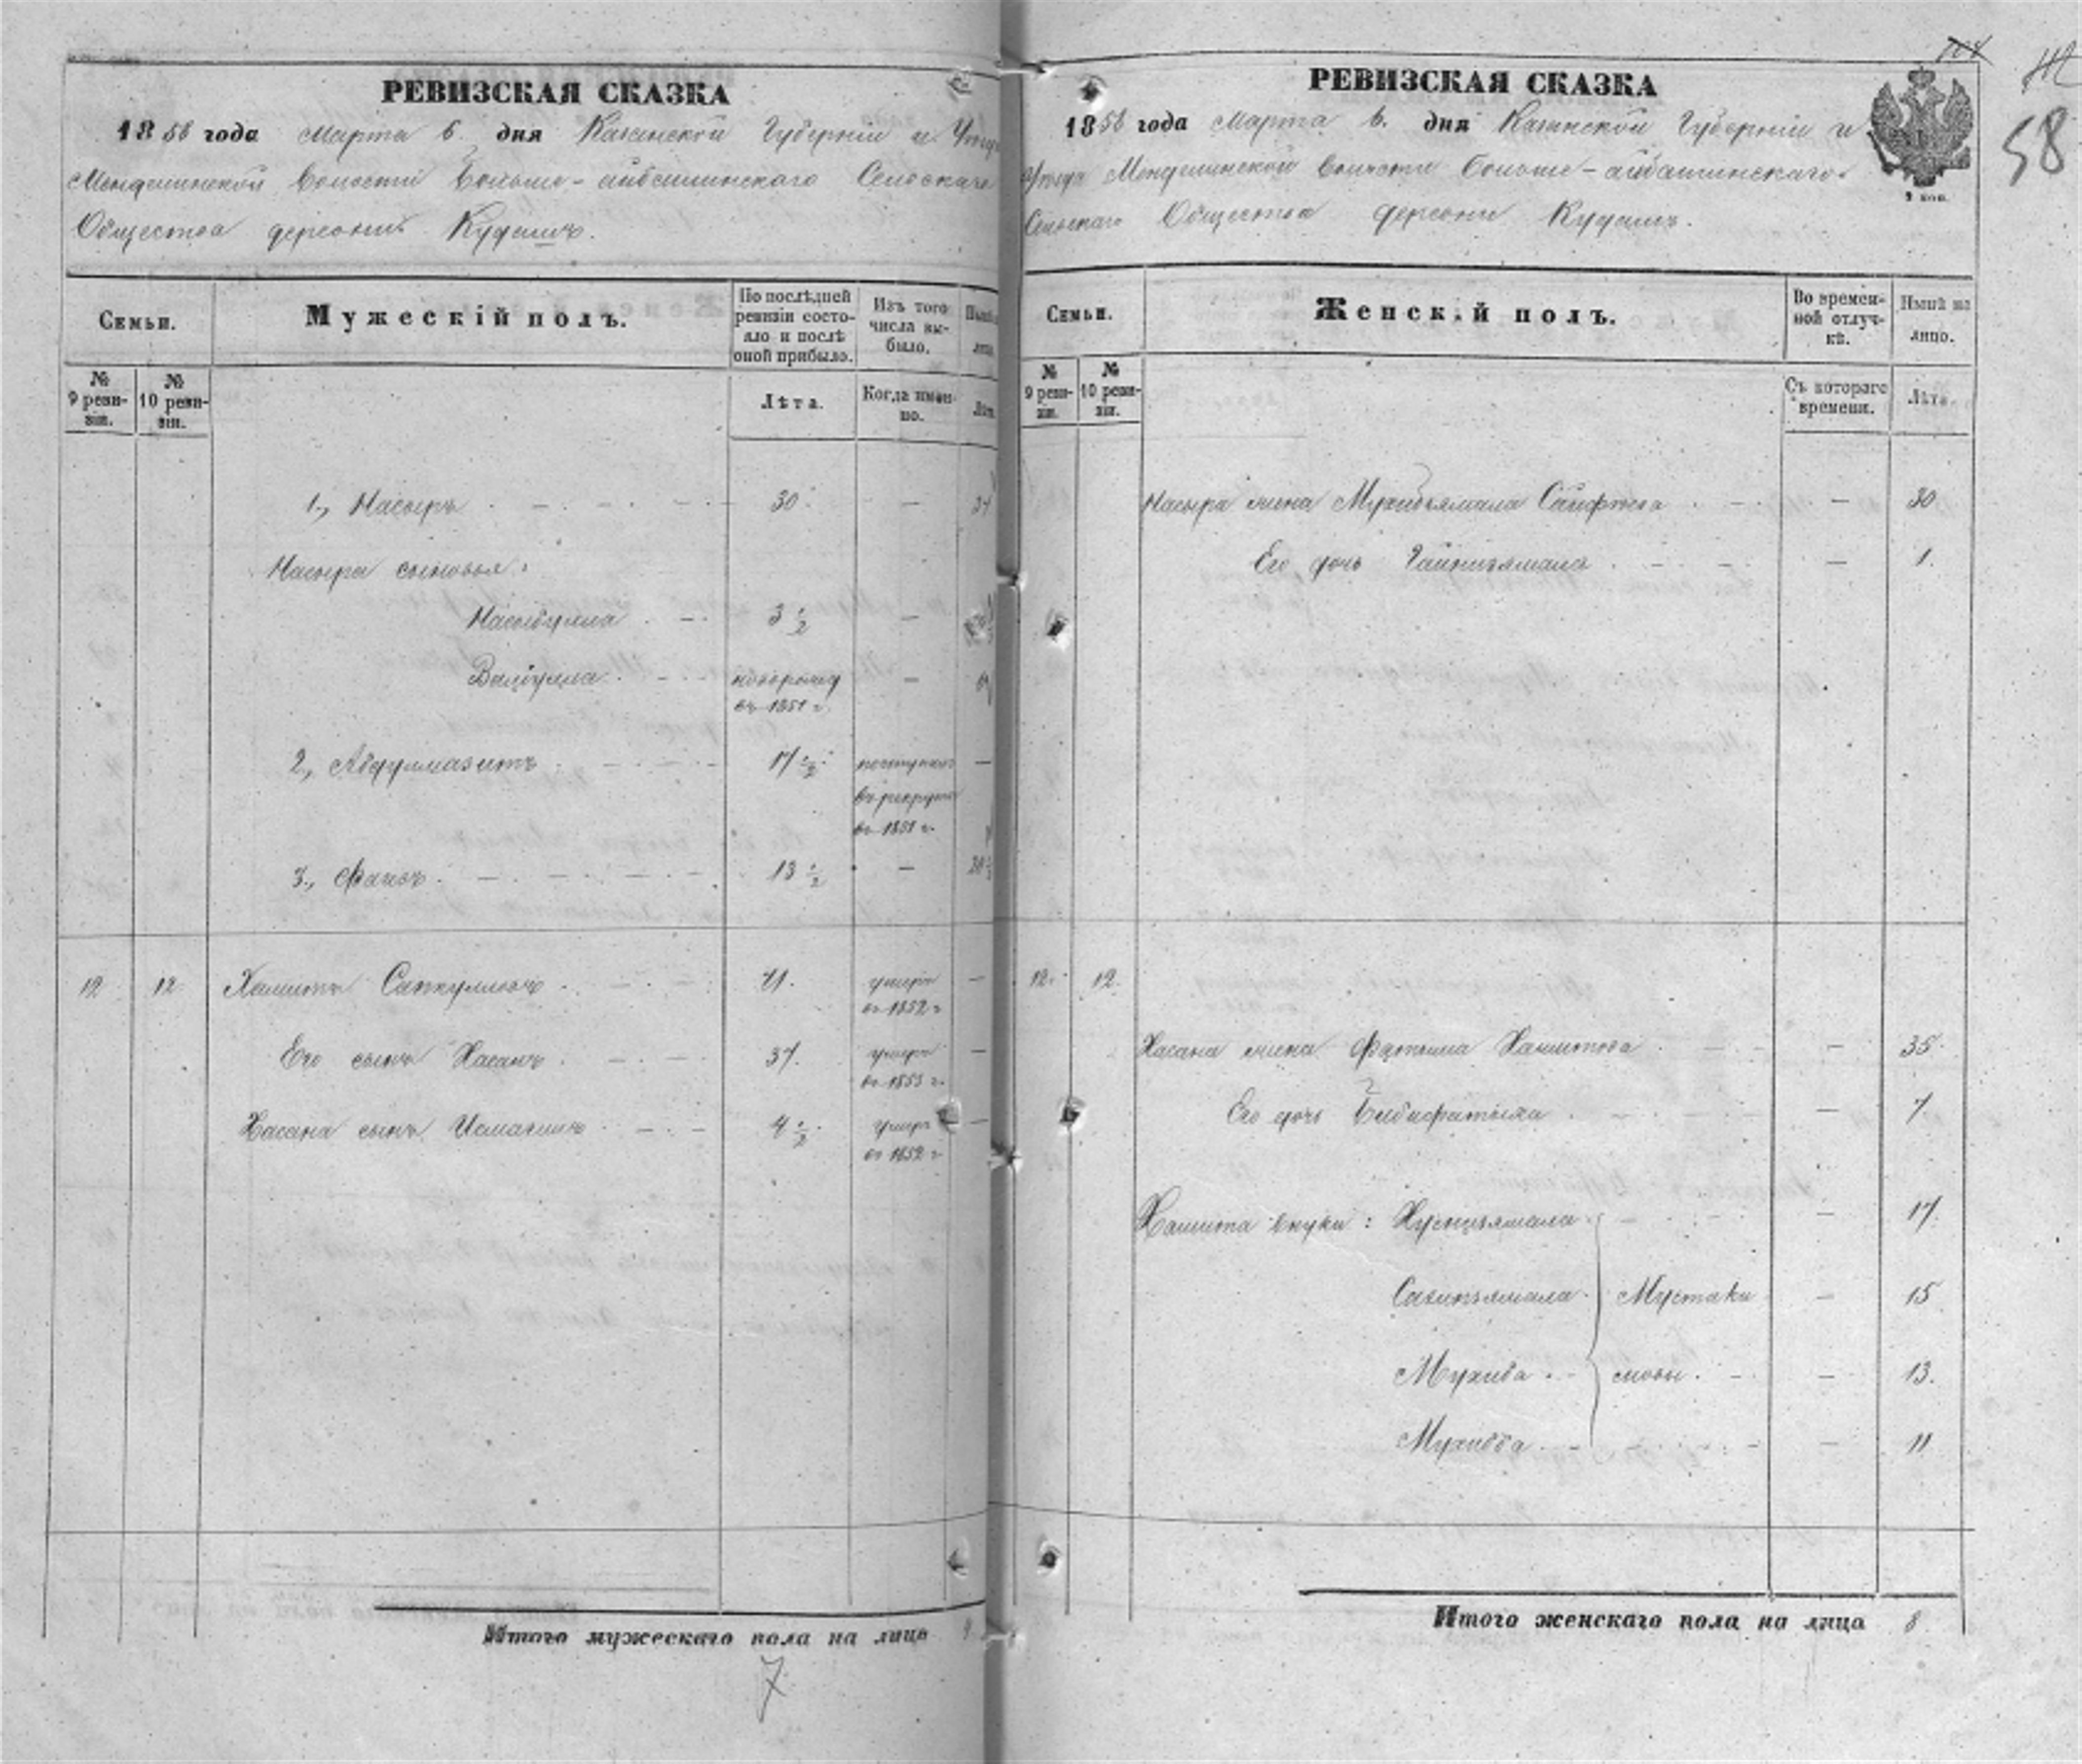 РЕВИЗСКАЯ СКАЗКА
1858 года Марта 6. дня Казанской Губерніи и
Мендешинской Волости Больше-айбашинскаго Сельскаго
Общества деревни Кудашъ.
Семьи.
Мужескій полъ.
По послѣдней ревизіи состо-
яло и послѣ
оной прибыло.
Изъ того
числа вы-
было.
№
9 реви-
зіи.
№
10 реви-
зіи.
Лѣта.
Когда имен-
но.
1., Насыръ 30 —
Насыра сыновья:
Насыбулла 3 ½ —
Валіулла новорожд —
въ 1851 г.
2., 17 ½ поступилъ —
въ рекруты
въ 1851 г.
3., 13 ½ —
12 12 Хамитъ 71. умеръ —
въ 1852 г
Его сынъ Хасанъ 37. умеръ —
въ 1853 г.
Хасана сынъ Исмагилъ 4 ½ умеръ —
въ 1852 г
Итого мужескаго пола на лицо
7
РЕВИЗСКАЯ СКАЗКА
58
1858 года Марта 6. дня Казанской Губерніи и
Уѣзда Мендешинской Волости Больше-айбашинскаго
Сельскаго Общества деревни Кудашъ.
2 коп.
Семьи.
Женскій полъ.
Во времен-
ной отлуч-
кѣ.
Нынѣ на
лицо.
№
9 реви-
зіи.
№
10 реви-
зіи.
Съ котораго
времени.
Лѣта.
Насыра жена — 30
Его дочь — 1.
12. 12.
Хасана жена Фатыма Хамитова — 35
Его дочь — 7
Хамита внуки: — 17.
Мустаки — 15
Мухиба мовы. — 13.
— 11
Итого женскаго пола на лица 8